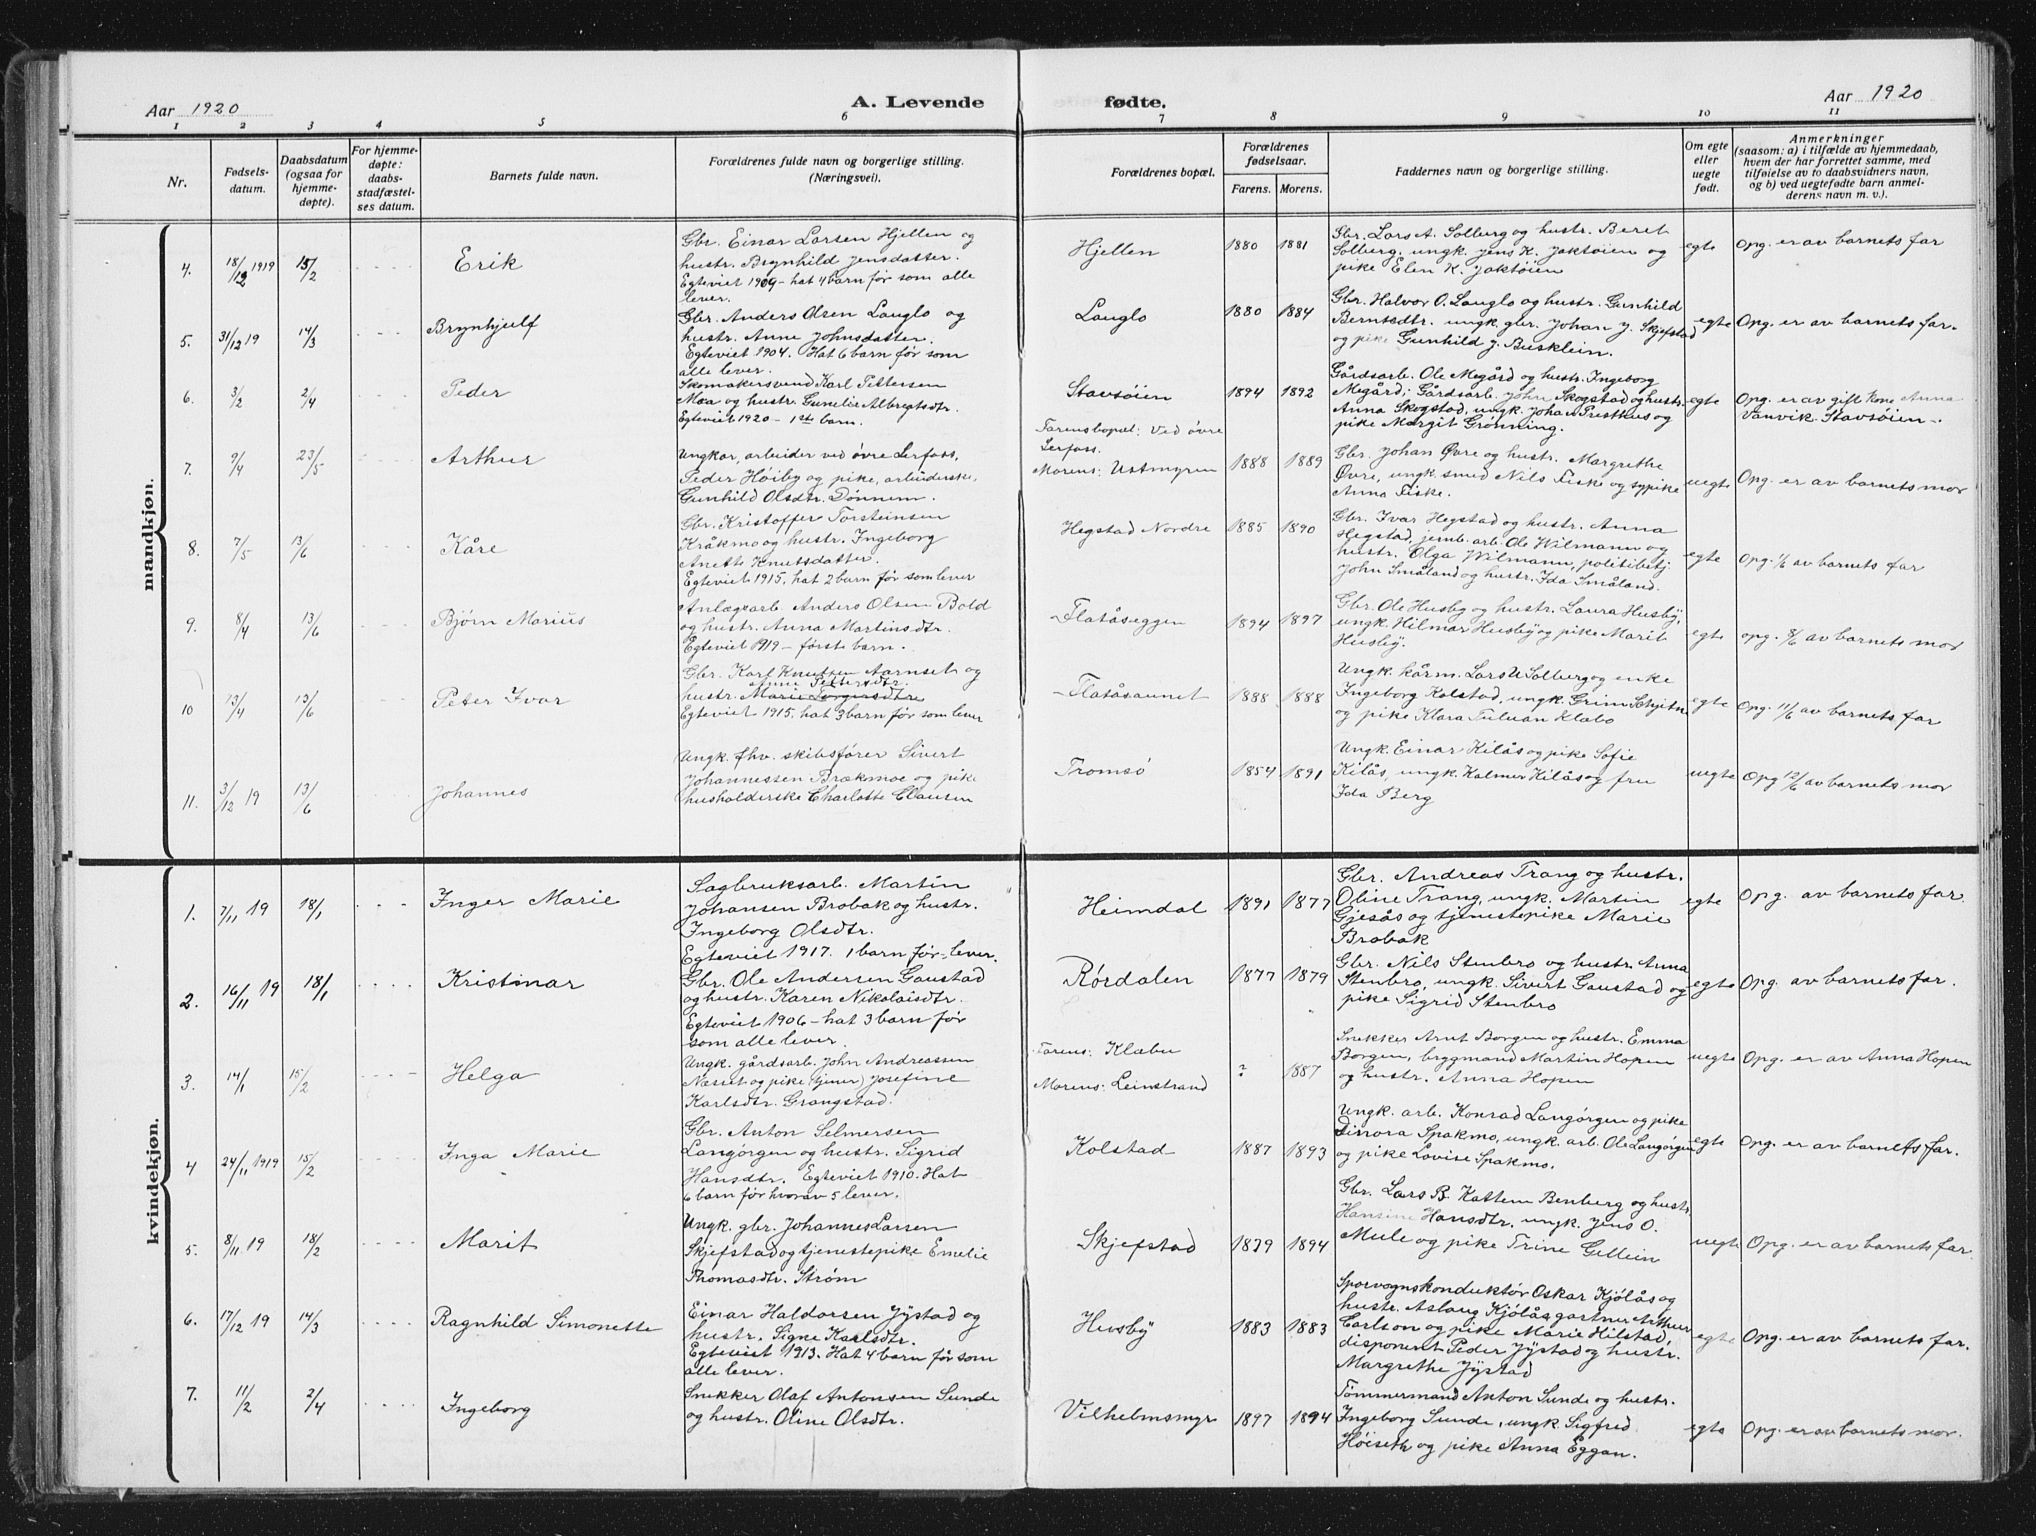 Aar 1920
A. Levende
fødte.
Aar 1920
1 2 3 4 5 6 7 8 9 10 11
Nr.
Fødsels-
datum.
Daabsdatum
(ogsaa for
hjemme-
døpte).
For hjemme-
døpte:
daabs-
stadfæstel-
ses datum.
Barnets fulde navn.
Forældrenes fulde navn og borgerlige stilling.
(Næringsvei).
Forældrenes bopæl.
Forældrenes
fødselsaar.
Farens. Morens.
Faddernes navn og borgerlige stilling.
Om egte
eller
uegte
født.
Anmerkninger
(saasom: a) i tilfælde av hjemmedaab,
hvem der har forrettet samme, med
tilføielse av to daabsvidners navn,
og b) ved uegtefødte barn anmel-
derens navn m. v.).
mandkjøn.
4.
18/12 1919
15/2
Erik
Gbr. Einar Larsen Hjellen og
hustr. Brynhild Jensdatter.
Egteviet 1909 - hat 4 barn før som alle
lever.
Hjellen
1880 1881
Gbr. Lars A. Solberg og hustr. Beret
Solberg, ungk. Jens K. Jaktøien og
pike Elen K. Jaktøien
egte
Opg. er av barnets far
5.
31/12 19
14/3
Brynhjulf
Gbr. Anders Olsen Lauglo og
hustr. Anne Johnsdatter.
Egteviet 1904. Hat 6 barn før som
alle lever.
Lauglo
1880 1884
Gbr. Halvor O. Lauglo og hustr. Gunhild
Berntsdtr. ungk. gbr. Johan J. Skjefstad
og pike Gunhild J. Busklein.
egte
Opg. er av barnets far.
6.
3/2
2/4
Peder
Skomakersvend Karl Pettersen
Moa og hustr. Gunelie Albregtsdtr.
Egteviet 1920 - 1ste barn.
Stavsøien
1894 1892
Gårdsarb. Ole Megård og hustr. Ingeborg
Megård; Gårdsarb. John Skogstad og hustr.
Anna Skogstad, ungk. Johan Presthus og
pike Margit Grønning.
egte
Opg. er av gift kone Anna
Vanvik Stavsøien.
7.
9/4
23/5
Arthur
Ungkar, arbeider ved øvre Lerfoss,
Peder Høiby og pike, arbeiderske,
Gunhild Olsdtr. Dønnem.
Farens bopæl: Ved øvre
Lerfoss.
Morens: Ustmyren
1888 1889
Gbr. Johan Øvre og hustr. Margrethe
Øvre, ungk. smed Nils Fiske og sypike
Anna Fiske.
uegte
Opg. er av barnets mor
8.
7/5
13/6
Kåre
Gbr. Kristoffer Torsteinsen
Kråkmo og hustr. Ingeborg
Anette Knutsdatter.
Egteviet 1915, hat 2 barn før som lever
Hegstad Nordre
1885 1890
Gbr. Ivar Hegstad og hustr. Anna
Hegstad, jernb. arb. Ole Wilmann og
hustr. Olga Wilmann, politibetj.
John Småland og hustr. Ida Småland.
egte
Opg. 1/6 av barnets far
9.
8/4
13/6
Bjørn Marius
Anlægsarb. Anders Olsen Bold
og hustr. Anna Martinsdtr.
Egteviet 1919 - første barn.
Flatåseggen
1894 1897
Gbr. Ole Husby og hustr. Laura Husby,
ungk. Hilmar Husby og pike Marit
Husby.
egte
opg. 8/6 av barnets mor
10
13/4
13/6
Peter Ivar
Gbr. Karl Knutsen Aarnset og
Anne Pettersdtr.
hustr. Marie Torgersdtr.
Egteviet 1915, hat 3 barn før som lever
Flatåsaunet
1888 1888
Ungk. kårm. Lars Solberg og enke
Ingeborg Kolstad, ungk. Grim Schjetne
og pike Klara Tulluan Klæbo
egte
Opg. 11/6 av barnets far
11.
3/12 19
13/6
Johannes
Ungk. fhv. skibsfører Sivert
Johannessen Brækmoe og pike
husholderske Charlotte Clausen
Tromsø
1854 1891
Ungk. Einar Kilås og pike Sofie
Kilås, ungk. Kalmer Kilås og fru
Ida Berg
uegte
Opg 12/6 av barnets mor
kvindekjøn.
1.
7/11 19
18/1
Inger Marie
Sagbruksarb. Martin
Johansen Brobak og hustr.
Ingeborg Olsdtr.
Egteviet 1917. 1 barn før - lever.
Heimdal
1891 1877
Gbr. Andreas Trang og hustr.
Oline Trang, ungk. Martin
Gjesås og tjenestepike Marie
Brobak
egte
Opg. av barnets far
2.
16/11 19
18/1
Kristinar
Gbr. Ole Andersen Gaustad
og hustr. Karen Nikolaisdtr.
Egteviet 1906 - hat 3 barn før
som alle lever.
Rørdalen
1877 1879
Gbr. Nils Stenbro og hustr. Anna
Stenbro, ungk. Sivert Gaustad og
pike Sigrid Stenbro
egte
Opg. av barnets far.
3.
14/1
15/2
Helga
Ungk. gårdsarb. John Andreassen
Næsset og pike (tjener) Josefine
Karlsdtr. Grangstad.
Farens: Klæbu
Morens: Leinstrand
? 1887
Snekker Arnt Borgen og hustr. Emma
Borgen, brygmand Martin Hopen
og hustr. Anna Hopen
uegte
Opg. er av Anna Hopen
4
24/11 1919
15/2
Inga Marie
Gbr. Anton Selmersen
Langørgen og hustr. Sigrid
Hansdtr. Egteviet 1910. Hat
6 barn før hvorav 5 lever.
Kolstad
1887 1893
Ungk. arb. Konrad Langørgen og pike
Dinora Spakmo, ungk. arb. Ole Langørgen
og pike Lovise Spakmo.
egte
Opg. er av barnets far.
5.
8/11 19
18/2
Marit
Ungk. gbr. Johannes Larsen
Skjefstad og tjenestepike Emelie
Thomasdtr. Strøm
Skjefstad
1879 1894
Gbr. Lars B. Kattem Benberg og hustr.
Hansine Hansdtr. ungk. Jens O.
Mule og pike Trine Gellein
uegte
Opg. er av barnets far.
6.
17/12 19
14/3
Ragnhild Simonette
Einar Haldorsen Jystad og
hustr. Signe Karlsdtr.
Egteviet 1913. Hat 4 barn før som
alle lever.
Husby
1883 1883
Sporvognskonduktør Oskar Kjølås og
hustr. Aslaug Kjølås, gartner Arthur
Carlson og pike Marie Hilstad,
disponent Peder Jystad og hustr.
Margrethe Jystad
egte
Opg. er av barnets far.
7.
11/2
2/4
Ingeborg
Snekker Olaf Antonsen Sunde
og hustr. Oline Olsdtr.
Vilhelmsmyr
1897 1894
Tømmermand Anton Sunde og hustr.
Ingeborg Sunde, ungk. Sigfred
Høiseth og pike Anna Eggan.
egte
Opg. er av barnets mor.